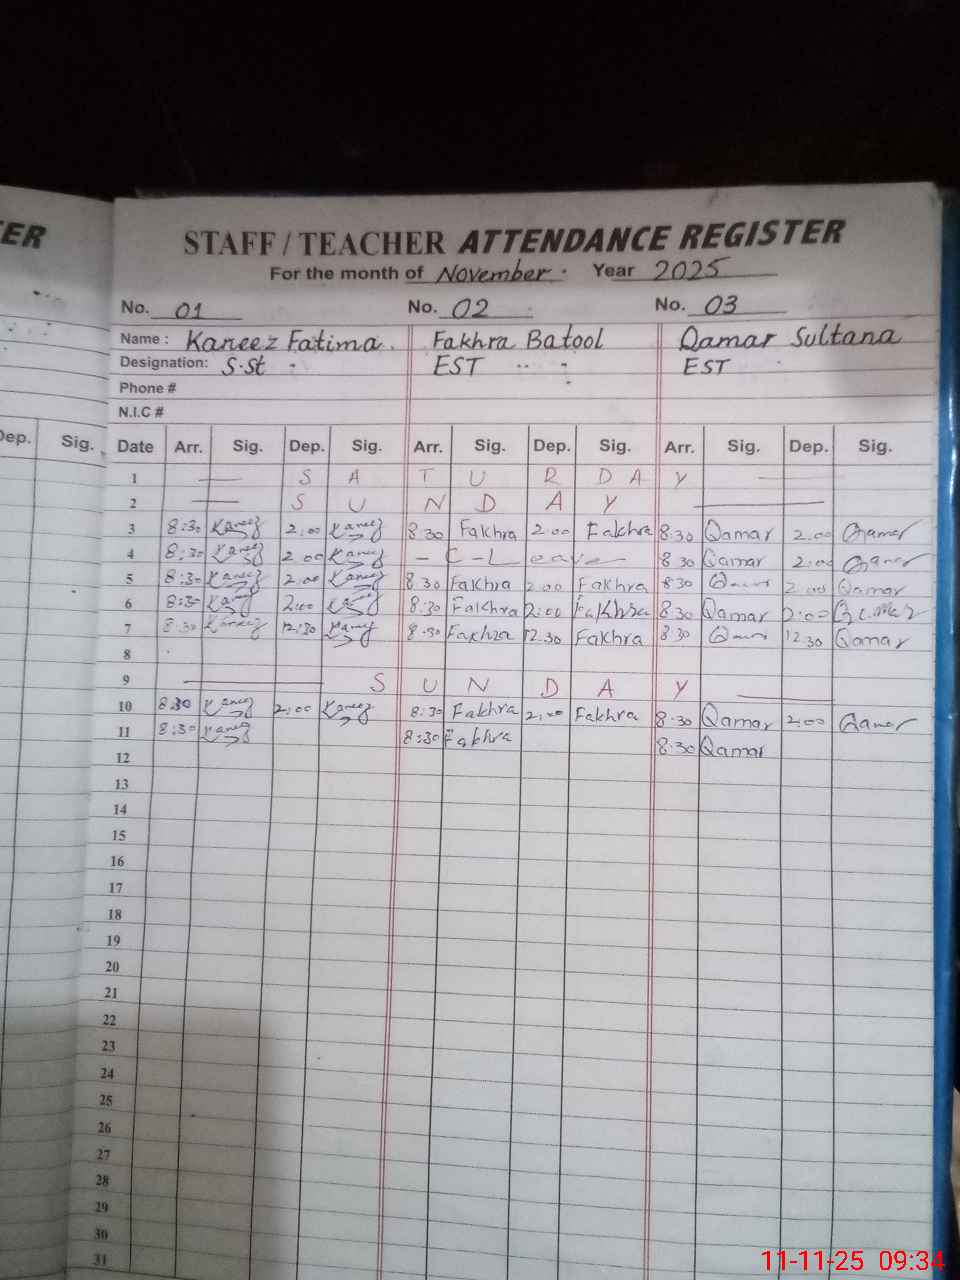 ER
STAFF / TEACHER ATTENDANCE REGISTER
For the month of November. Year 2025
No. 01 No. 02 No. 03
Name : Kaneez Fatima. Fakhra Batool Qamar Sultana
Designation: S.St EST EST
Phone #
N.I.C #
Dep. Sig. Date Arr. Sig. Dep. Sig. Arr. Sig. Dep. Sig. Arr. Sig. Dep. Sig.
1 S A T U R D A Y
2 S U N D A Y
3 8:30 Kaneez 2:00 Kaneez 8 30 Fakhra 2:00 Fakhra 8:30 Qamar 2:00 Qamar
4 8:30 Kaneez 2:00 Kaneez - C-Leave- 8 30 Qamar 2:00 Qamar
5 8:30 Kaneez 2:00 Kaneez 8.30 Fakhra 2:00 Fakhra 8:30 2:00 Qamar
6 8:30 Kaneez 2:00 Kaneez 8:30 Fakhra 2:00 Fakhra 8:30 Qamar 2:00
7 8:30 Kaneez 12:30 Kaneez 8:30 Fakhra 12.30 Fakhra 8 30 12.30 Qamar
8
9 S U N D A Y
10 8:30 Kaneez 2:00 Kaneez 8:30 Fakhra 2:00 Fakhra 8:30 Qamar 2:00 Qamar
11 8:30 Kaneez 8:30 Fakhra 8:30 Qamar
12
13
14
15
16
17
18
19
20
21
22
23
24
25
26
27
28
29
30
31
11-11-25 09:34